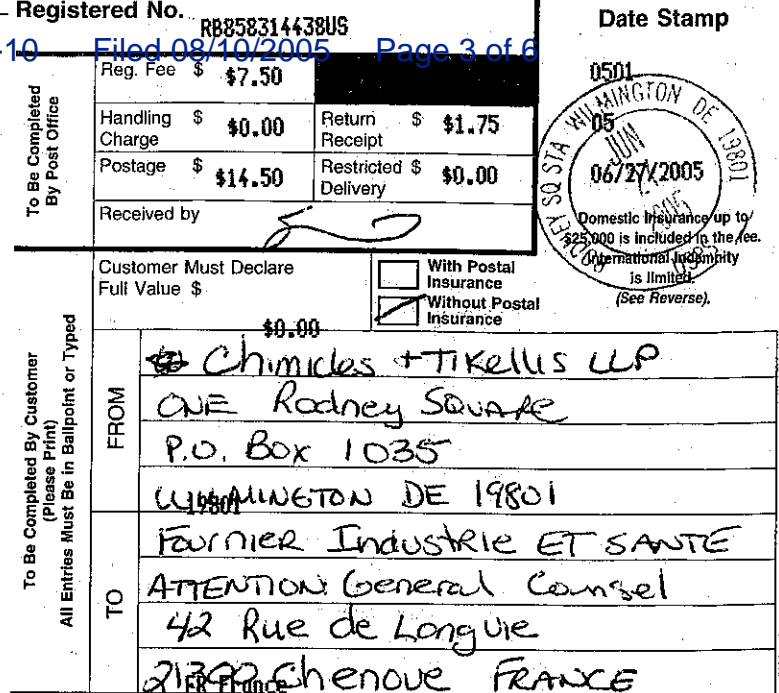 Registered No. RB858314438US
Date Stamp
-10 Filed 08/10/2005 Page 3 of 6
To Be Completed By Post Office
Reg. Fee $ $7.50
Handling Charge $ $0.00
Return Receipt $ $1.75
Postage $ $14.50
Restricted Delivery $ $0.00
Received by
0501
05
06/27/2005
RODNEY SQ STA WILMINGTON DE 19801
JUN
2005
USPS
Domestic Insurance up to
$25,000 is included in the fee.
International Indemnity
is limited.
(See Reverse).
Customer Must Declare
Full Value $
$0.00
With Postal
Insurance
Without Postal
Insurance
To Be Completed By Customer
(Please Print)
All Entries Must Be in Ballpoint or Typed
FROM
Chimicles + Tikellis LLP
ONE Rodney Square
P.O. Box 1035
WILMINGTON DE 19801
19801
TO
Fournier Industrie ET SANTE
ATTENTION: General Counsel
42 Rue de Longvie
21300 Chenove FRANCE
FR France